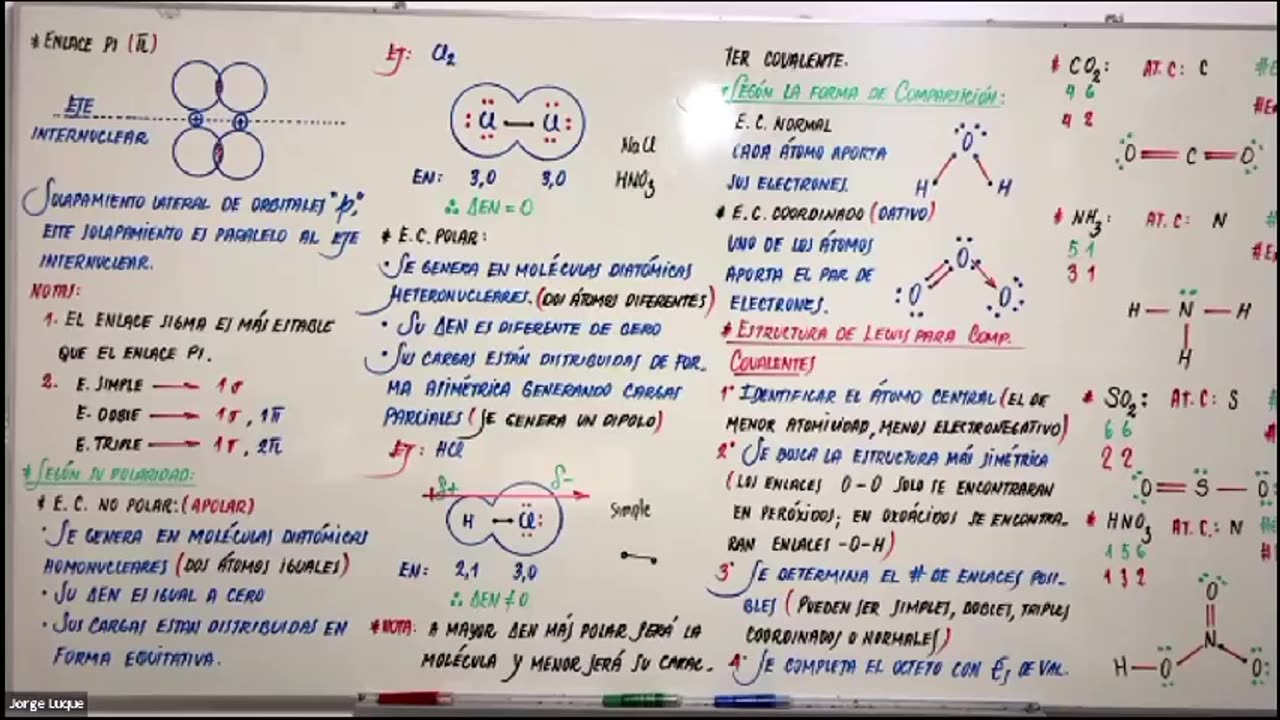 * ENLACE PI (π)
EJE
INTERNUCLEAR
SOLAPAMIENTO LATERAL DE ORBITALES "p",
ESTE SOLAPAMIENTO ES PARALELO AL EJE
INTERNUCLEAR.
NOTAS:
1. EL ENLACE SIGMA ES MÁS ESTABLE
QUE EL ENLACE PI.
2. E. SIMPLE → 1σ
E. DOBLE → 1σ, 1π
E. TRIPLE → 1σ, 2π
* SEGÚN SU POLARIDAD:
* E. C. NO POLAR: (APOLAR)
• SE GENERA EN MOLÉCULAS DIATÓMICAS
HOMONUCLEARES (DOS ÁTOMOS IGUALES)
• SU ΔEN ES IGUAL A CERO
• SUS CARGAS ESTAN DISTRIBUIDAS EN
FORMA EQUITATIVA.
EJ: Cl2
Cl — Cl
EN: 3,0 3,0
∴ ΔEN = 0
NaCl
HNO3
* E.C. POLAR:
• SE GENERA EN MOLÉCULAS DIATÓMICAS
HETERONUCLEARES. (DOS ÁTOMOS DIFERENTES)
• SU ΔEN ES DIFERENTE DE CERO
• SUS CARGAS ESTÁN DISTRIBUIDAS DE FOR-
MA ASIMÉTRICA GENERANDO CARGAS
PARCIALES (SE GENERA UN DIPOLO)
EJ: HCl
δ+ δ-
H Cl
EN: 2,1 3,0
∴ ΔEN ≠ 0
Simple
* NOTA: A MAYOR ΔEN MÁS POLAR SERÁ LA
MOLÉCULA Y MENOR SERÁ SU CARAC.
TER COVALENTE.
* SEGÚN LA FORMA DE COMPARTICIÓN:
E. C. NORMAL
CADA ÁTOMO APORTA
SUS ELECTRONES.
O
H H
* E. C. COORDINADO (DATIVO)
UNO DE LOS ÁTOMOS
APORTA EL PAR DE
ELECTRONES.
O
O O
* ESTRUCTURA DE LEWIS PARA COMP.
COVALENTES
1° IDENTIFICAR EL ÁTOMO CENTRAL (EL DE
MENOR ATOMICIDAD, MENOS ELECTRONEGATIVO)
2° SE BUSCA LA ESTRUCTURA MÁS SIMÉTRICA
(LOS ENLACES O-O SOLO SE ENCONTRARAN
EN PERÓXIDOS; EN OXOÁCIDOS SE ENCONTRA-
RAN ENLACES -O-H)
3° SE DETERMINA EL # DE ENLACES POSI-
BLES (PUEDEN SER SIMPLES, DOBLES, TRIPLES
COORDINADOS O NORMALES)
4° SE COMPLETA EL OCTETO CON ēs DE VAL.
* CO2: AT. C: C
4 6
4 2
O = C = O
* NH3: AT. C: N
5 1
3 1
H — N — H
H
* SO2: AT. C: S
6 6
2 2
O = S — O
* HNO3 AT. C.: N
1 5 6
1 3 2
O
N
H — O O
Jorge Luque